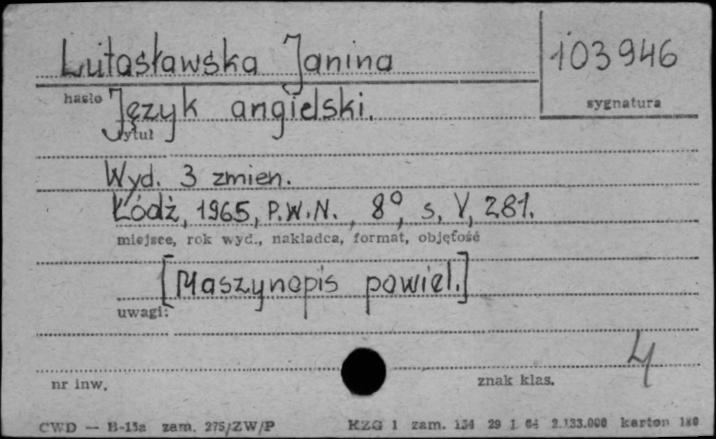 Lutosławska Janina
103946
hasło
sygnatura
Język angielski.
tytuł
Wyd. 3 zmien.
Łódź, 1965, P.W.N., 8°, s. V, 281.
miejsce, rok wyd., nakładca, format, objętość
[Maszynopis powiel.]
uwagi:
4
nr inw.
znak klas.
CWD — B-15a zam. 275/ZW/P
KZG 1 zam. 154 29 I 64 2.133.000 karton 180